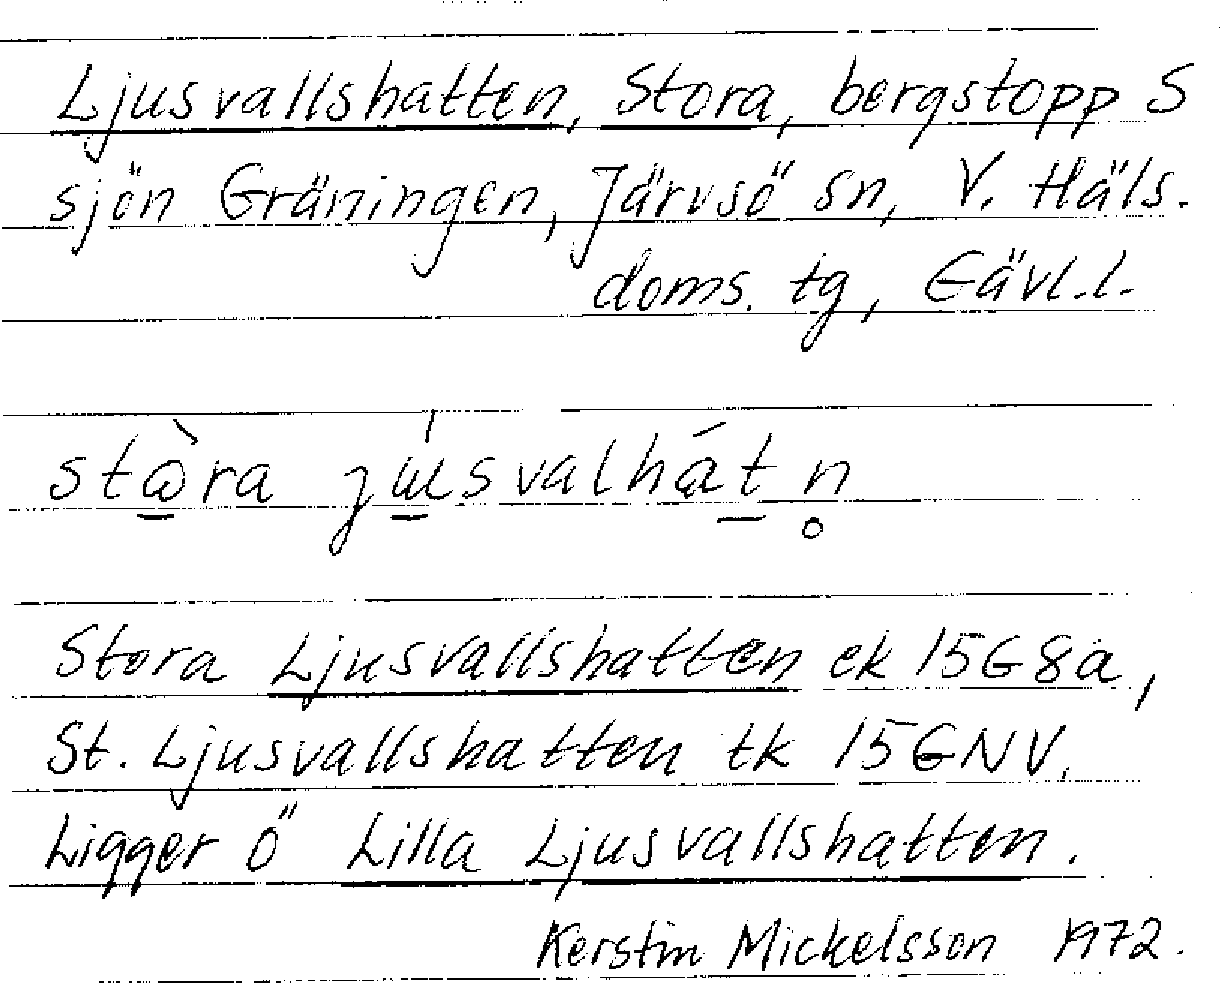 Ljusvallshatten, Stora, bergstopp S
sjön Gräningen, Järvsö sn, V. Häls.
doms. tg, Gävl.l.
stɷ̠̀ra jɯ̠́svalhát̠n̥
Stora Ljusvallshatten ek 15G8a,
St. Ljusvallshatten tk 15GNV.
Ligger Ö Lilla Ljusvallshatten.
Kerstin Mickelsson 1972.